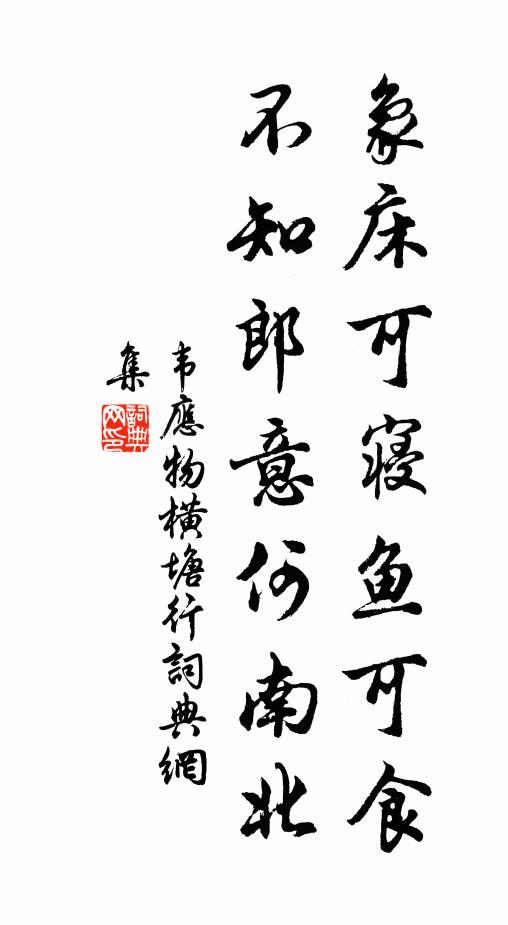 象床可寝鱼可食
不知郎意何南北
韦應物横塘行詞典網
集
詞典
网印